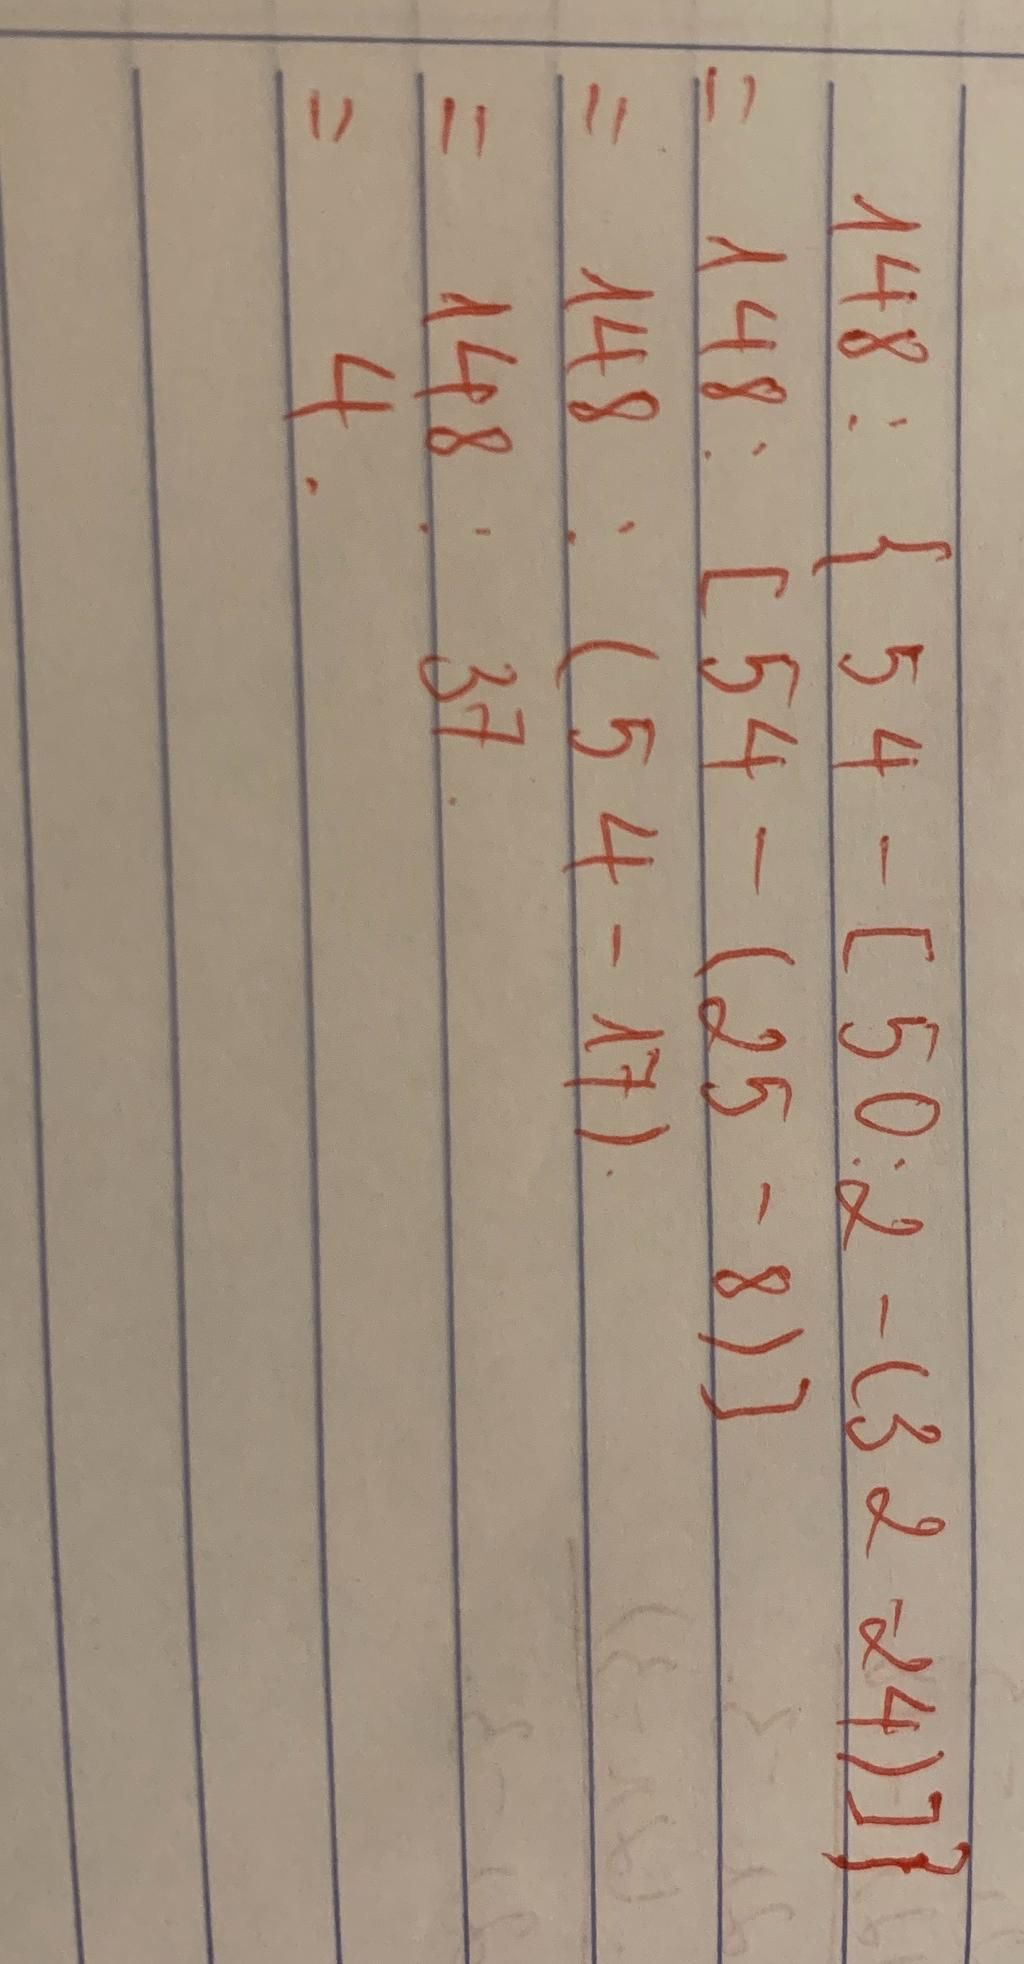 148 : {54 - [50:2 - (32 - 24)]}
= 148 : [54 - (25 - 8)]
= 148 : (54 - 17).
= 148 : 37.
= 4.